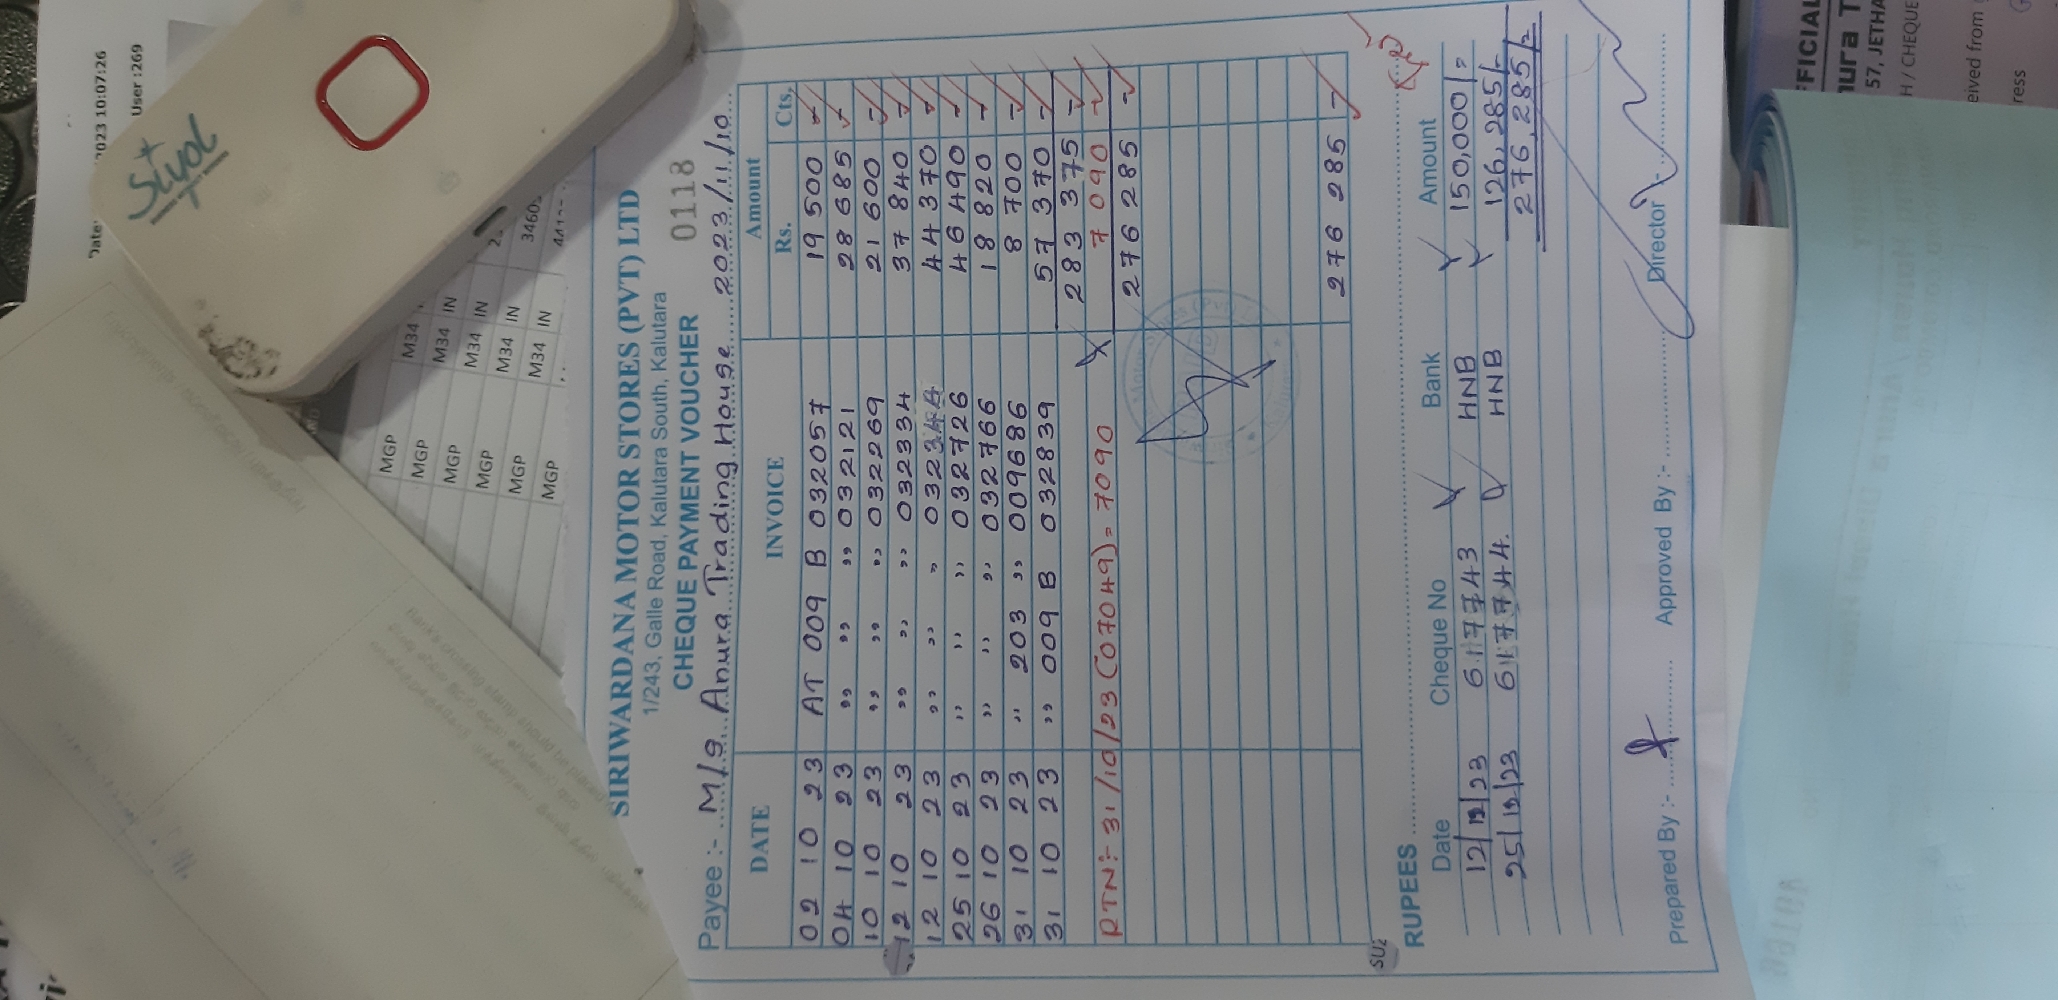 SIRIWARDANA MOTOR STORES (PVT) LTD
1/243, Galle Road, Kalutara South, Kalutara
CHEQUE PAYMENT VOUCHER 0118
Payee :- M/s Anura Trading House 2023/11/10
DATE INVOICE Amount
Rs. Cts.
02 10 23 AT 009 B 032057 19 500 -
04 10 23 ,, ,, ,, 032121 28 685 -
10 10 23 ,, ,, ,, 032269 21 600 -
12 10 23 ,, ,, ,, 032334 37 840 -
12 10 23 ,, ,, ,, 032344 44 370 -
25 10 23 ,, ,, ,, 032726 46 490 -
26 10 23 ,, ,, ,, 032766 18 820 -
31 10 23 ,, 203 ,, 009686 8 700 -
31 10 23 ,, 009 B 032839 57 370 -
283 375 -
RTN:- 31/10/23 (07049) = 7090 7 090 -
276 285 -
276 285 -
RUPEES
Date Cheque No Bank Amount
12/12/23 617743 HNB 150,000/=
25/12/23 617744. HNB 126,285/-
276,285/=
Prepared By :- Approved By :- Director :-
Siyol
2023 10:07:26
User :269
Date:
MGP M34 IN
MGP M34 IN
MGP M34 IN
MGP M34 IN 3460
MGP M34 IN
MGP
FFICIAL
nura T
57, JETHA
H / CHEQUE
eived from
ress